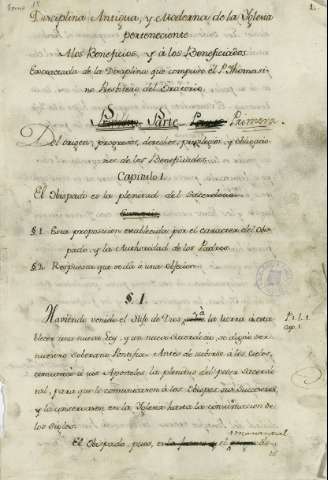 Tomo 1º
1.
Disciplina Antigua, y Moderna de la Yglesia
perteneciente
A los Beneficios, y à los Beneficiados
Extractada de la Disciplina que compuso el P. Thomasi-
no Presbitero del Oratorio.
Parte Primera.
Del origen, progresos, derechos, privilegios, y obligacio-
nes de los Beneficiados.
Capitulo 1.
El Obispado es la plenitud del Sacerdocio.
§ 1. Esta proposicion establecida por el caracter del Obis-
pado, y la Authoridad de los Padres.
§ 2. Respuesta que se dà à una objecion.
§. I.
Haviendo venido el Hijo de Dios, à la tierra à esta-
blecer una nueva Ley, y un nuevo Sacerdocio, se dignó ser
nuestro Soberano Pontifice. Antes de subirse à los Cielos,
comunicó à sus Apostoles la plenitud del poder Sacerdo-
tal, para que le comunicaran à los Obispos sus Succesores,
y la conservaran en la Yglesia hasta la consumacion de
los Siglos.
P. 1. l. 1.
cap. 1.
El Obispado, pues, es el